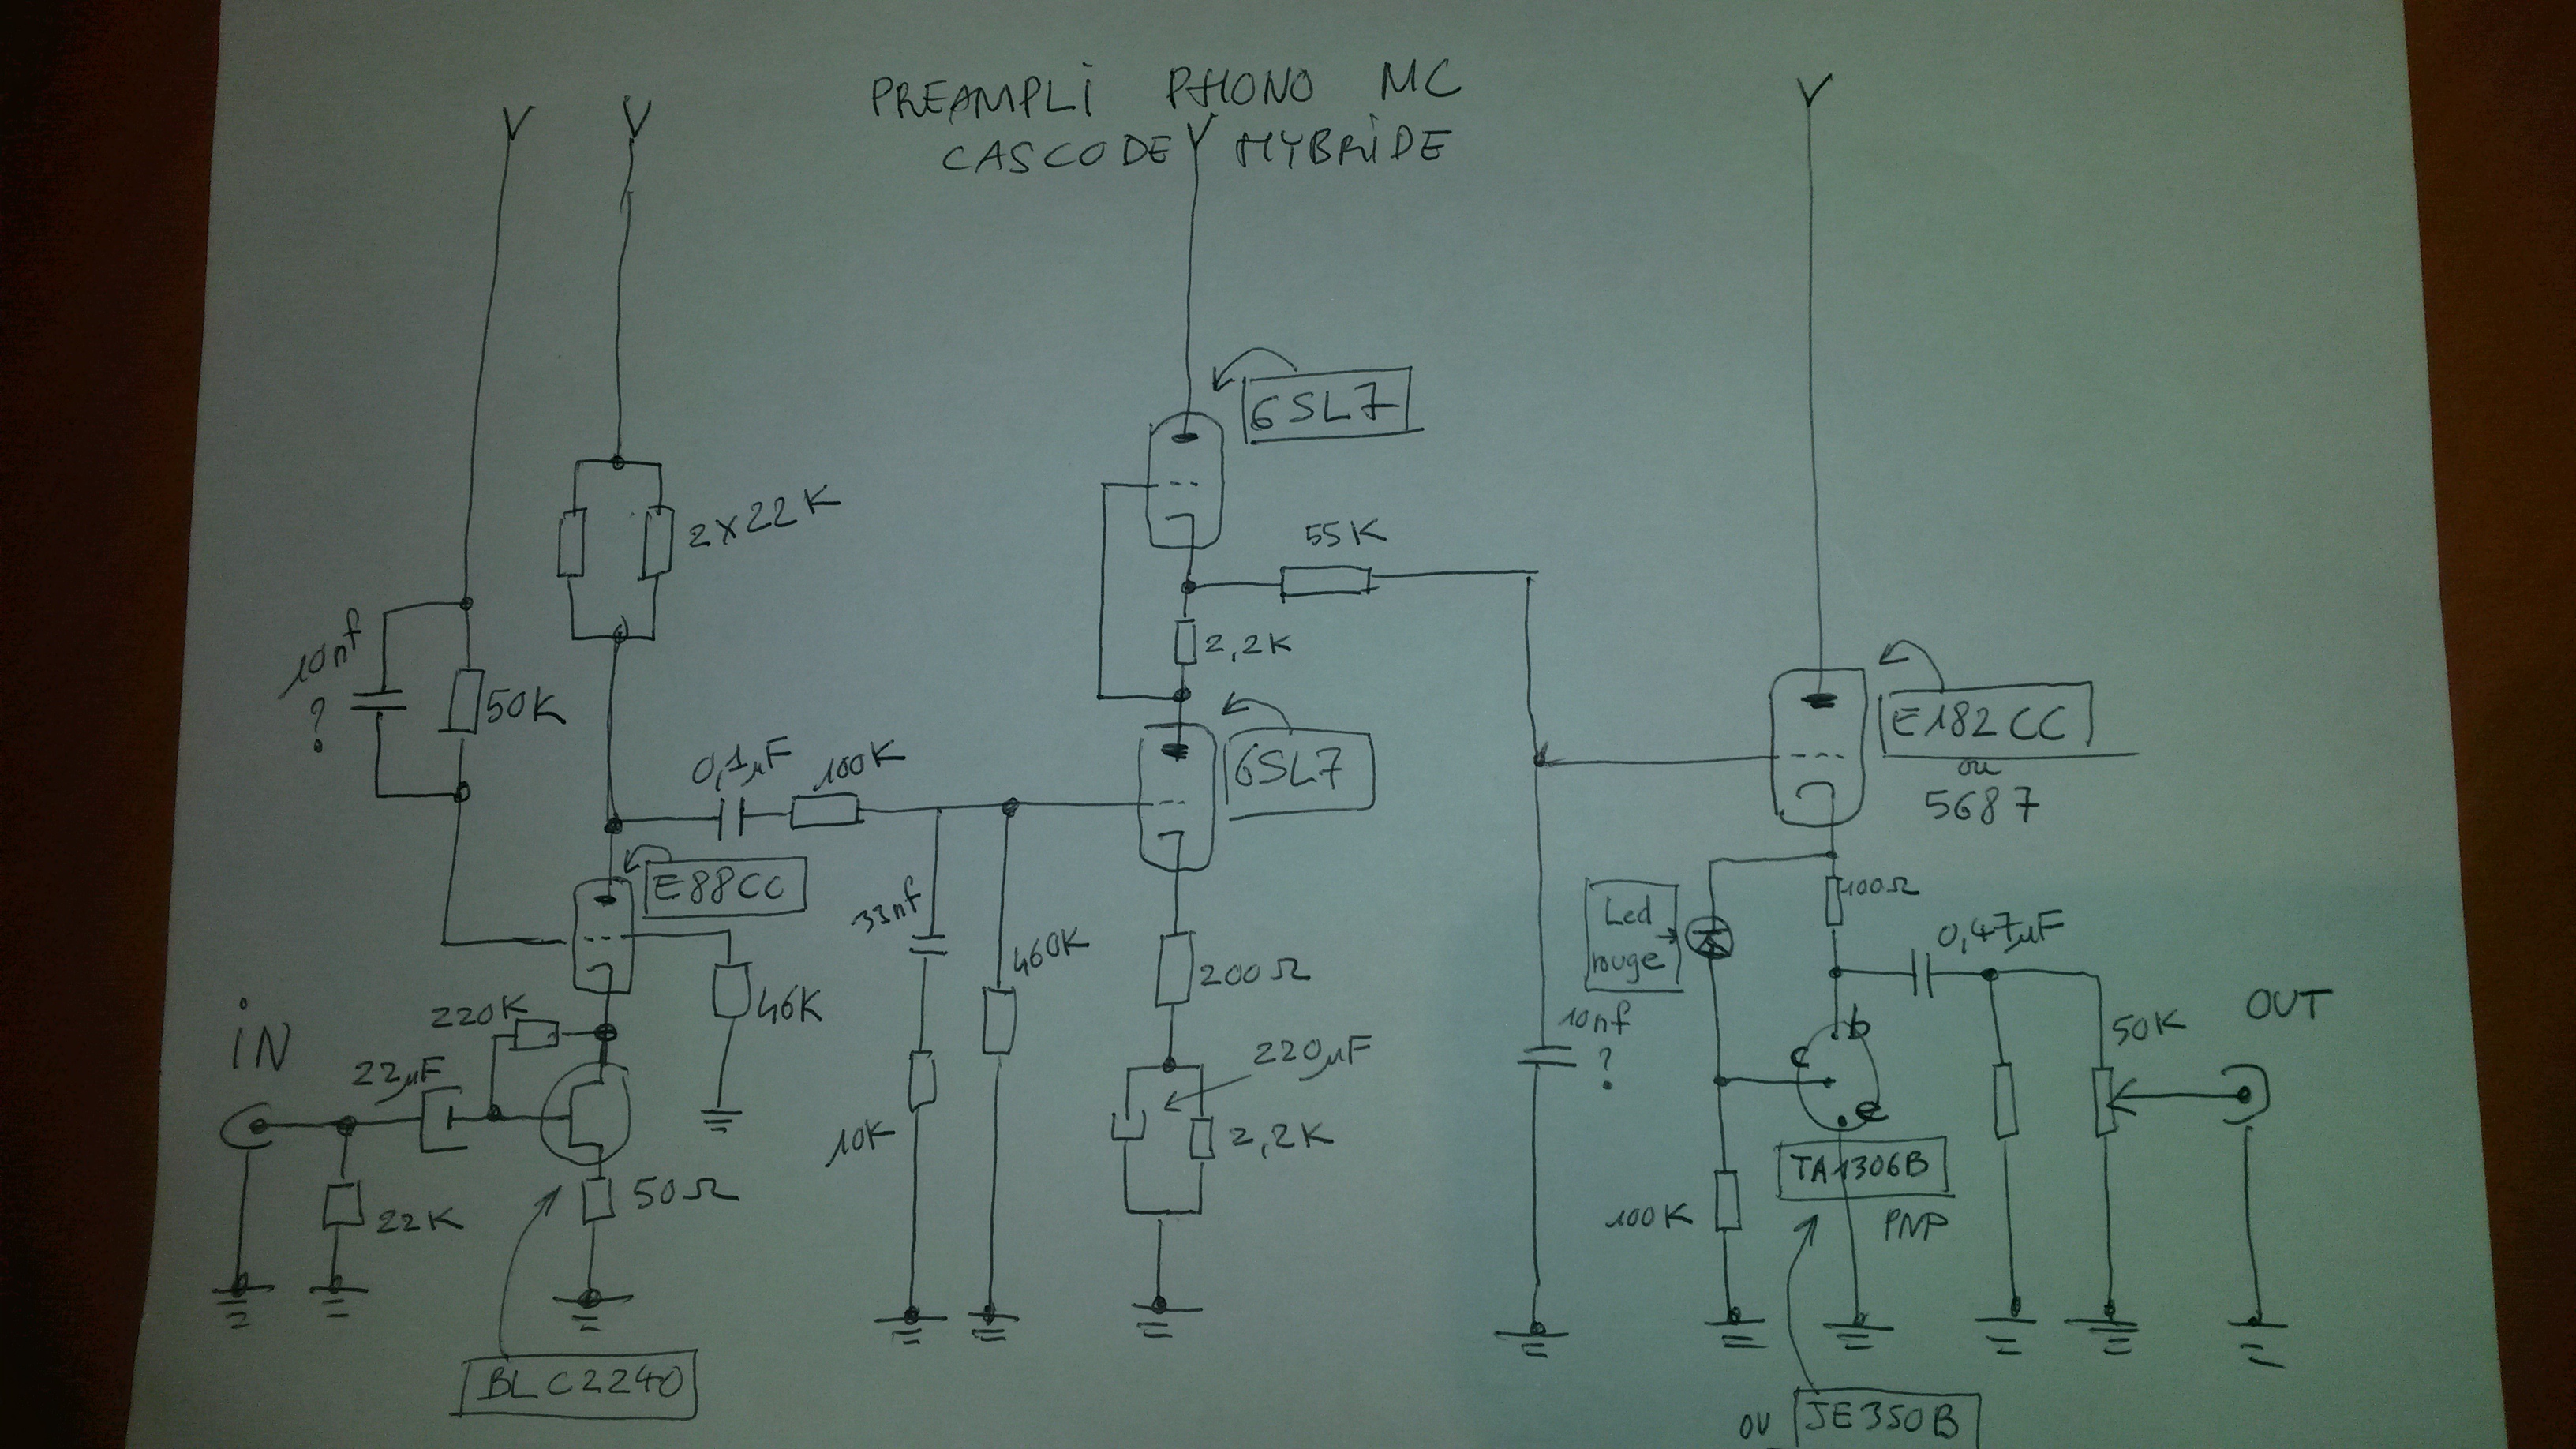 PREAMPLI PHONO MC
CASCODE HYBRIDE
6SL7
2x22K
55K
10nf
?
50K
2,2K
0,1µF
100K
6SL7
E182CC
ou
5687
E88CC
33nf
460K
200Ω
Led
rouge
100Ω
0,47µF
46K
220K
iN
22µF
10nf
?
b
c
e
50K
OUT
220µF
2,2K
10K
50Ω
22K
TA1306B
PNP
100K
BLC2240
ou JE350B